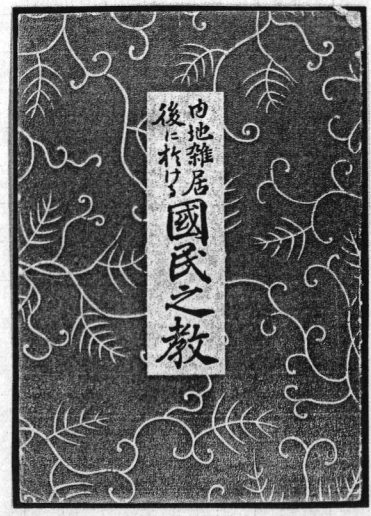 内地雑居
後に於ける
國民之教